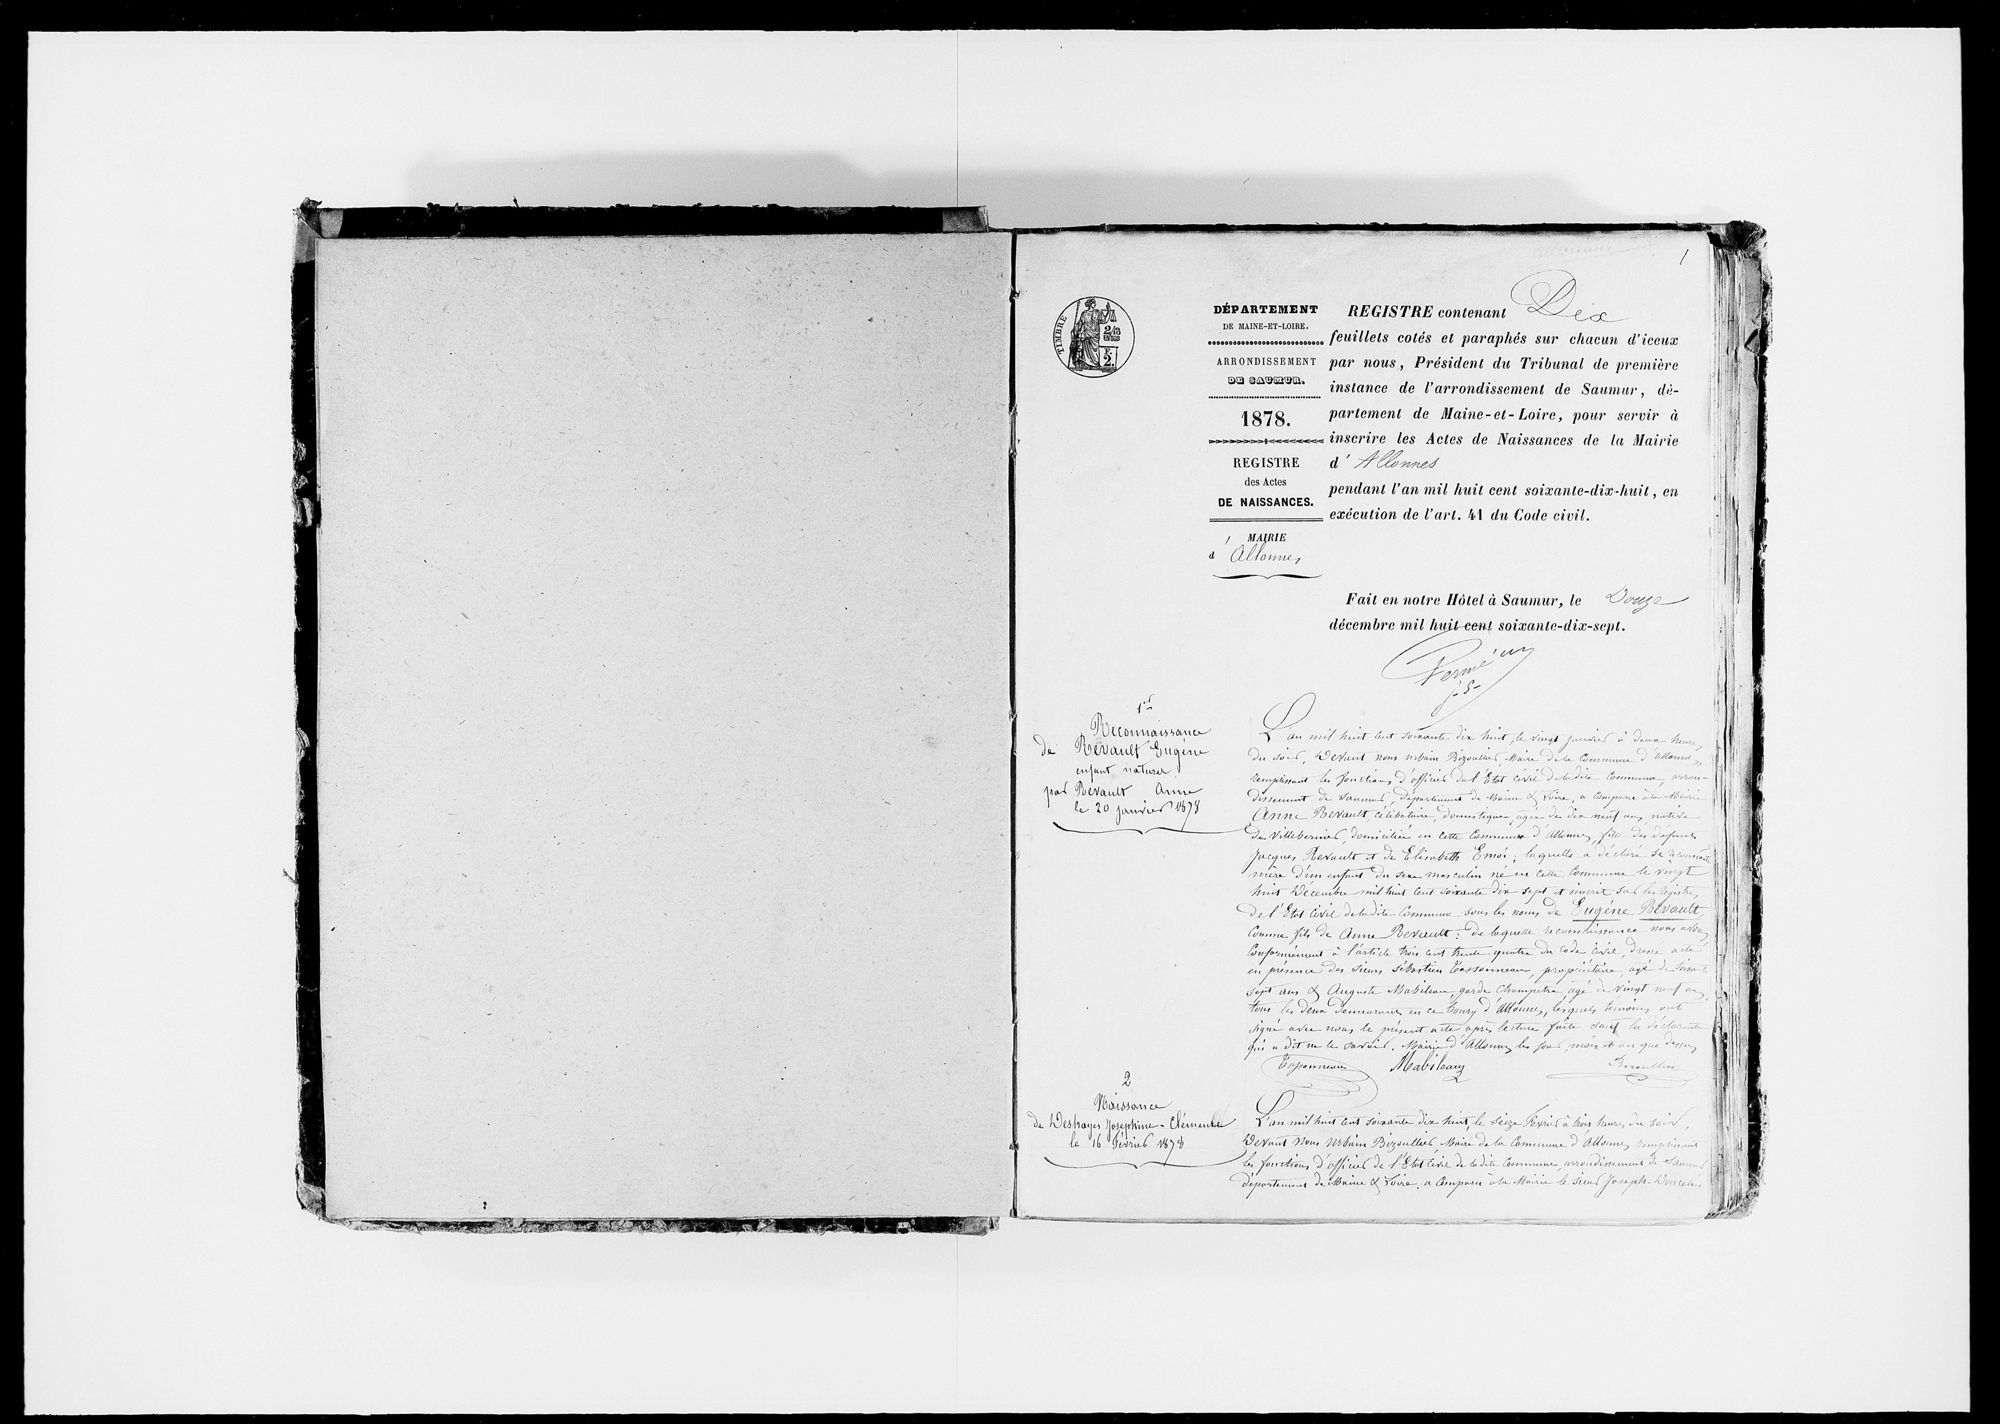 1
TIMBRE
2/10
EN SUS
2.
DÉPARTEMENT
DE MAINE-ET-LOIRE.
ARRONDISSEMENT
DE SAUMUR.
1878.
REGISTRE
des Actes
DE NAISSANCES.
MAIRIE
d'Allonnes
REGISTRE contenant Dix
feuillets cotés et paraphés sur chacun d'iceux
par nous, Président du Tribunal de première
instance de l'arrondissement de Saumur, dé-
partement de Maine-et-Loire, pour servir à
inscrire les Actes de Naissances de la Mairie
d' Allonnes
pendant l'an mil huit cent soixante-dix-huit, en
exécution de l'art. 41 du Code civil.
Fait en notre Hôtel à Saumur, le Douze
décembre mil huit cent soixante-dix-sept.
Reconnaissance
de Revault Eugène
enfant naturel
par Revault Anne
le 20 janvier 1878
L'an mil huit cent soixante dix huit, le vingt janvier à deux heures
du soir, Devant nous Urbain Bizoullier, Maire de la Commune d'Allonnes,
remplissant les fonctions d'officier de l'Etat civil de ladite Commune, arron-
dissement de Saumur, département de Maine & Loire, a comparu à la Mairie
Anne Revault, célibataire, domestique, agée de dix neuf ans, native
de Villebernier, domiciliée en cette Commune d'Allonnes, fille des défunts
Jacques Revault et de Elisabeth ; laquelle a déclaré se reconnaitre
mère d'un enfant du sexe masculin né en cette Commune le vingt
huit Décembre mil huit cent soixante dix sept et inscrit sur les registres
de l'Etat Civil de ladite Commune sous les noms de Eugène Revault,
comme fils de Anne Revault ; de laquelle reconnaissance nous avons
conformément à l'article trois cent trente quatre du code civil, dressé acte
en présence des sieurs Sébastien, propriétaire, agé de
sept ans & Auguste Mabileau, garde champêtre, agé de vingt neuf ans
tous les deux demeurant en ce bourg d'Allonnes, lesquels témoins ont
signé avec nous le présent acte après lecture faite sauf la déclarante
qui a dit ne le savoir. Mairie d'Allonnes les jour, mois et an que dessus
Mabileau
2
Naissance
de Deshayes Joséphine-Clémence
le 16 Février 1878
L'an mil huit cent soixante dix huit, le seize Février à trois heures du soir,
Devant nous Urbain Bizoullier Maire de la Commune d'Allonnes remplissant
les fonctions d'officier de l'Etat Civil de ladite Commune, arrondissement de Saumur
département de Maine & Loire, a comparu à la Mairie le sieur Joseph